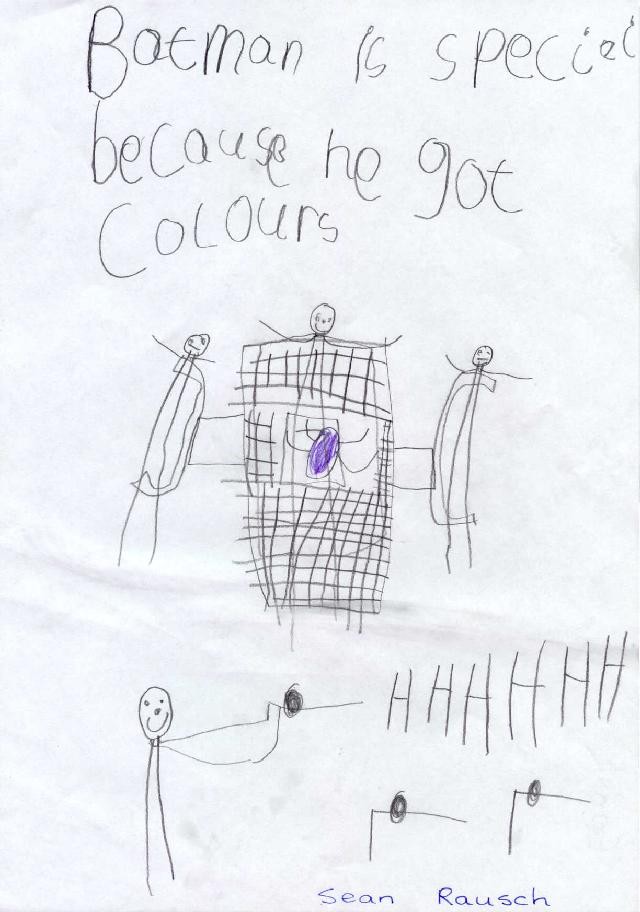 Batman is special
because he got
Colours
HHHHHH
Sean Rausch